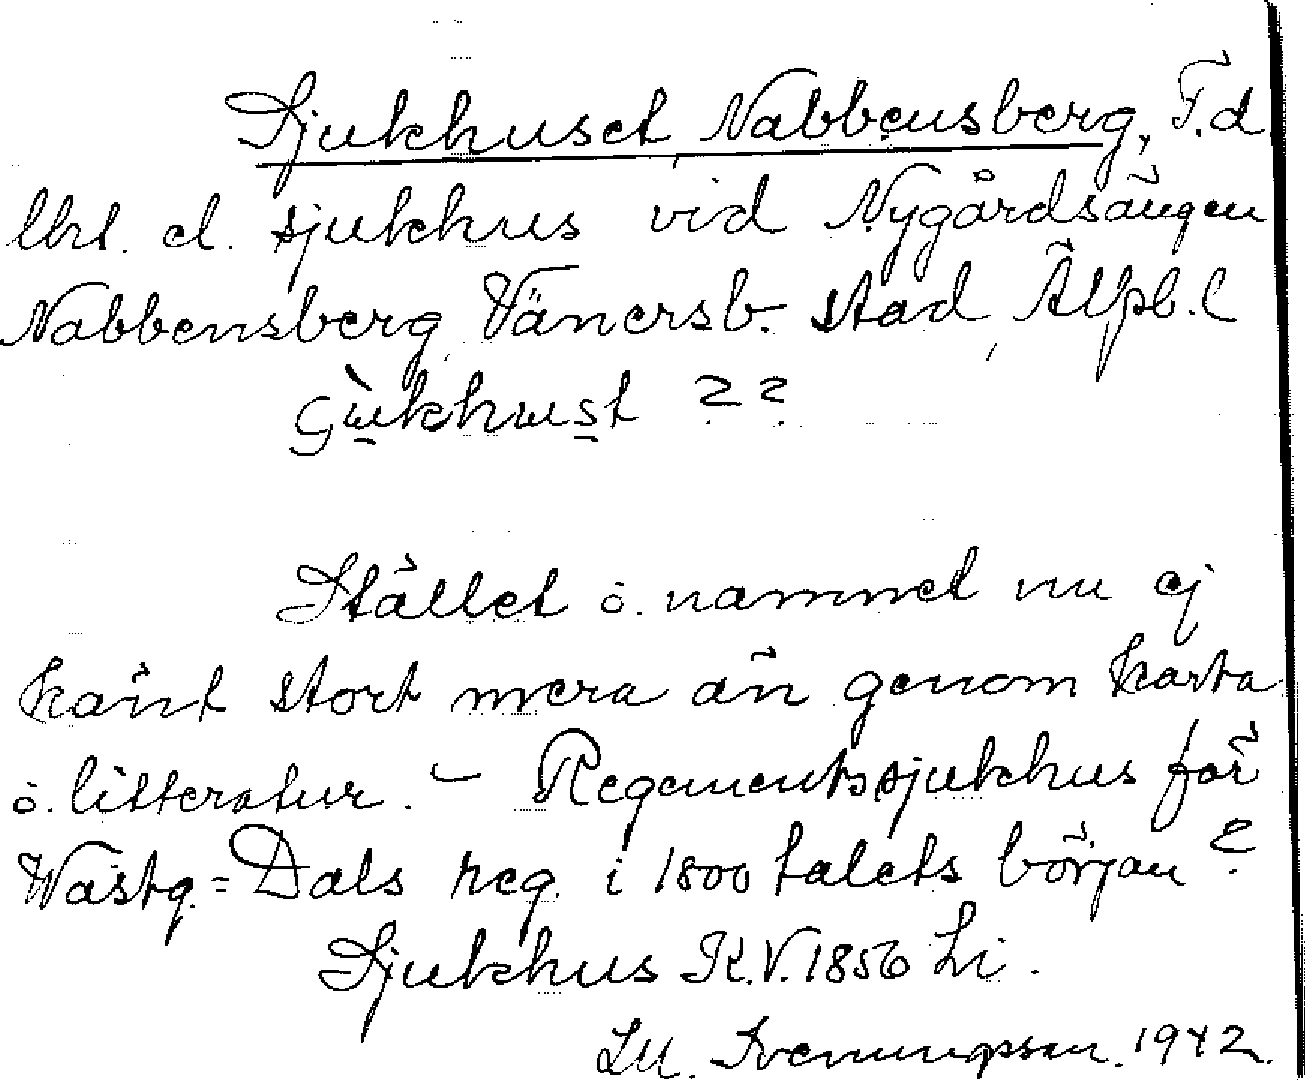 Sjukhuset Nabbensberg, F.d
lht. el. sjukhus vid Nygårdsängen
Nabbensberg, Vänersb. stad, Älfsb. l
sjukhust ??
Stället o. namnet nu ej
känt stort mera än genom karta
o. litteratur. – Regementssjukhus för
Wästg.=Dals reg. i 1800 talets början?
Sjukhus K.V. 1856 Li.
Svenungsson. 1942.